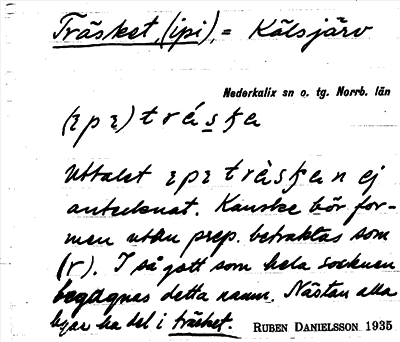 Träsket, (ipi), = Kälsjärv
Nederkalix sn o. tg. Norrb. län
Uttalet ej
antecknat. Kanske bör for-
men utan prep. betraktas som
(r). I så gott som hela socknen
begagnas detta namn. Nästan alla
byar ha del i träsket.
RUBEN DANIELSSON 1935